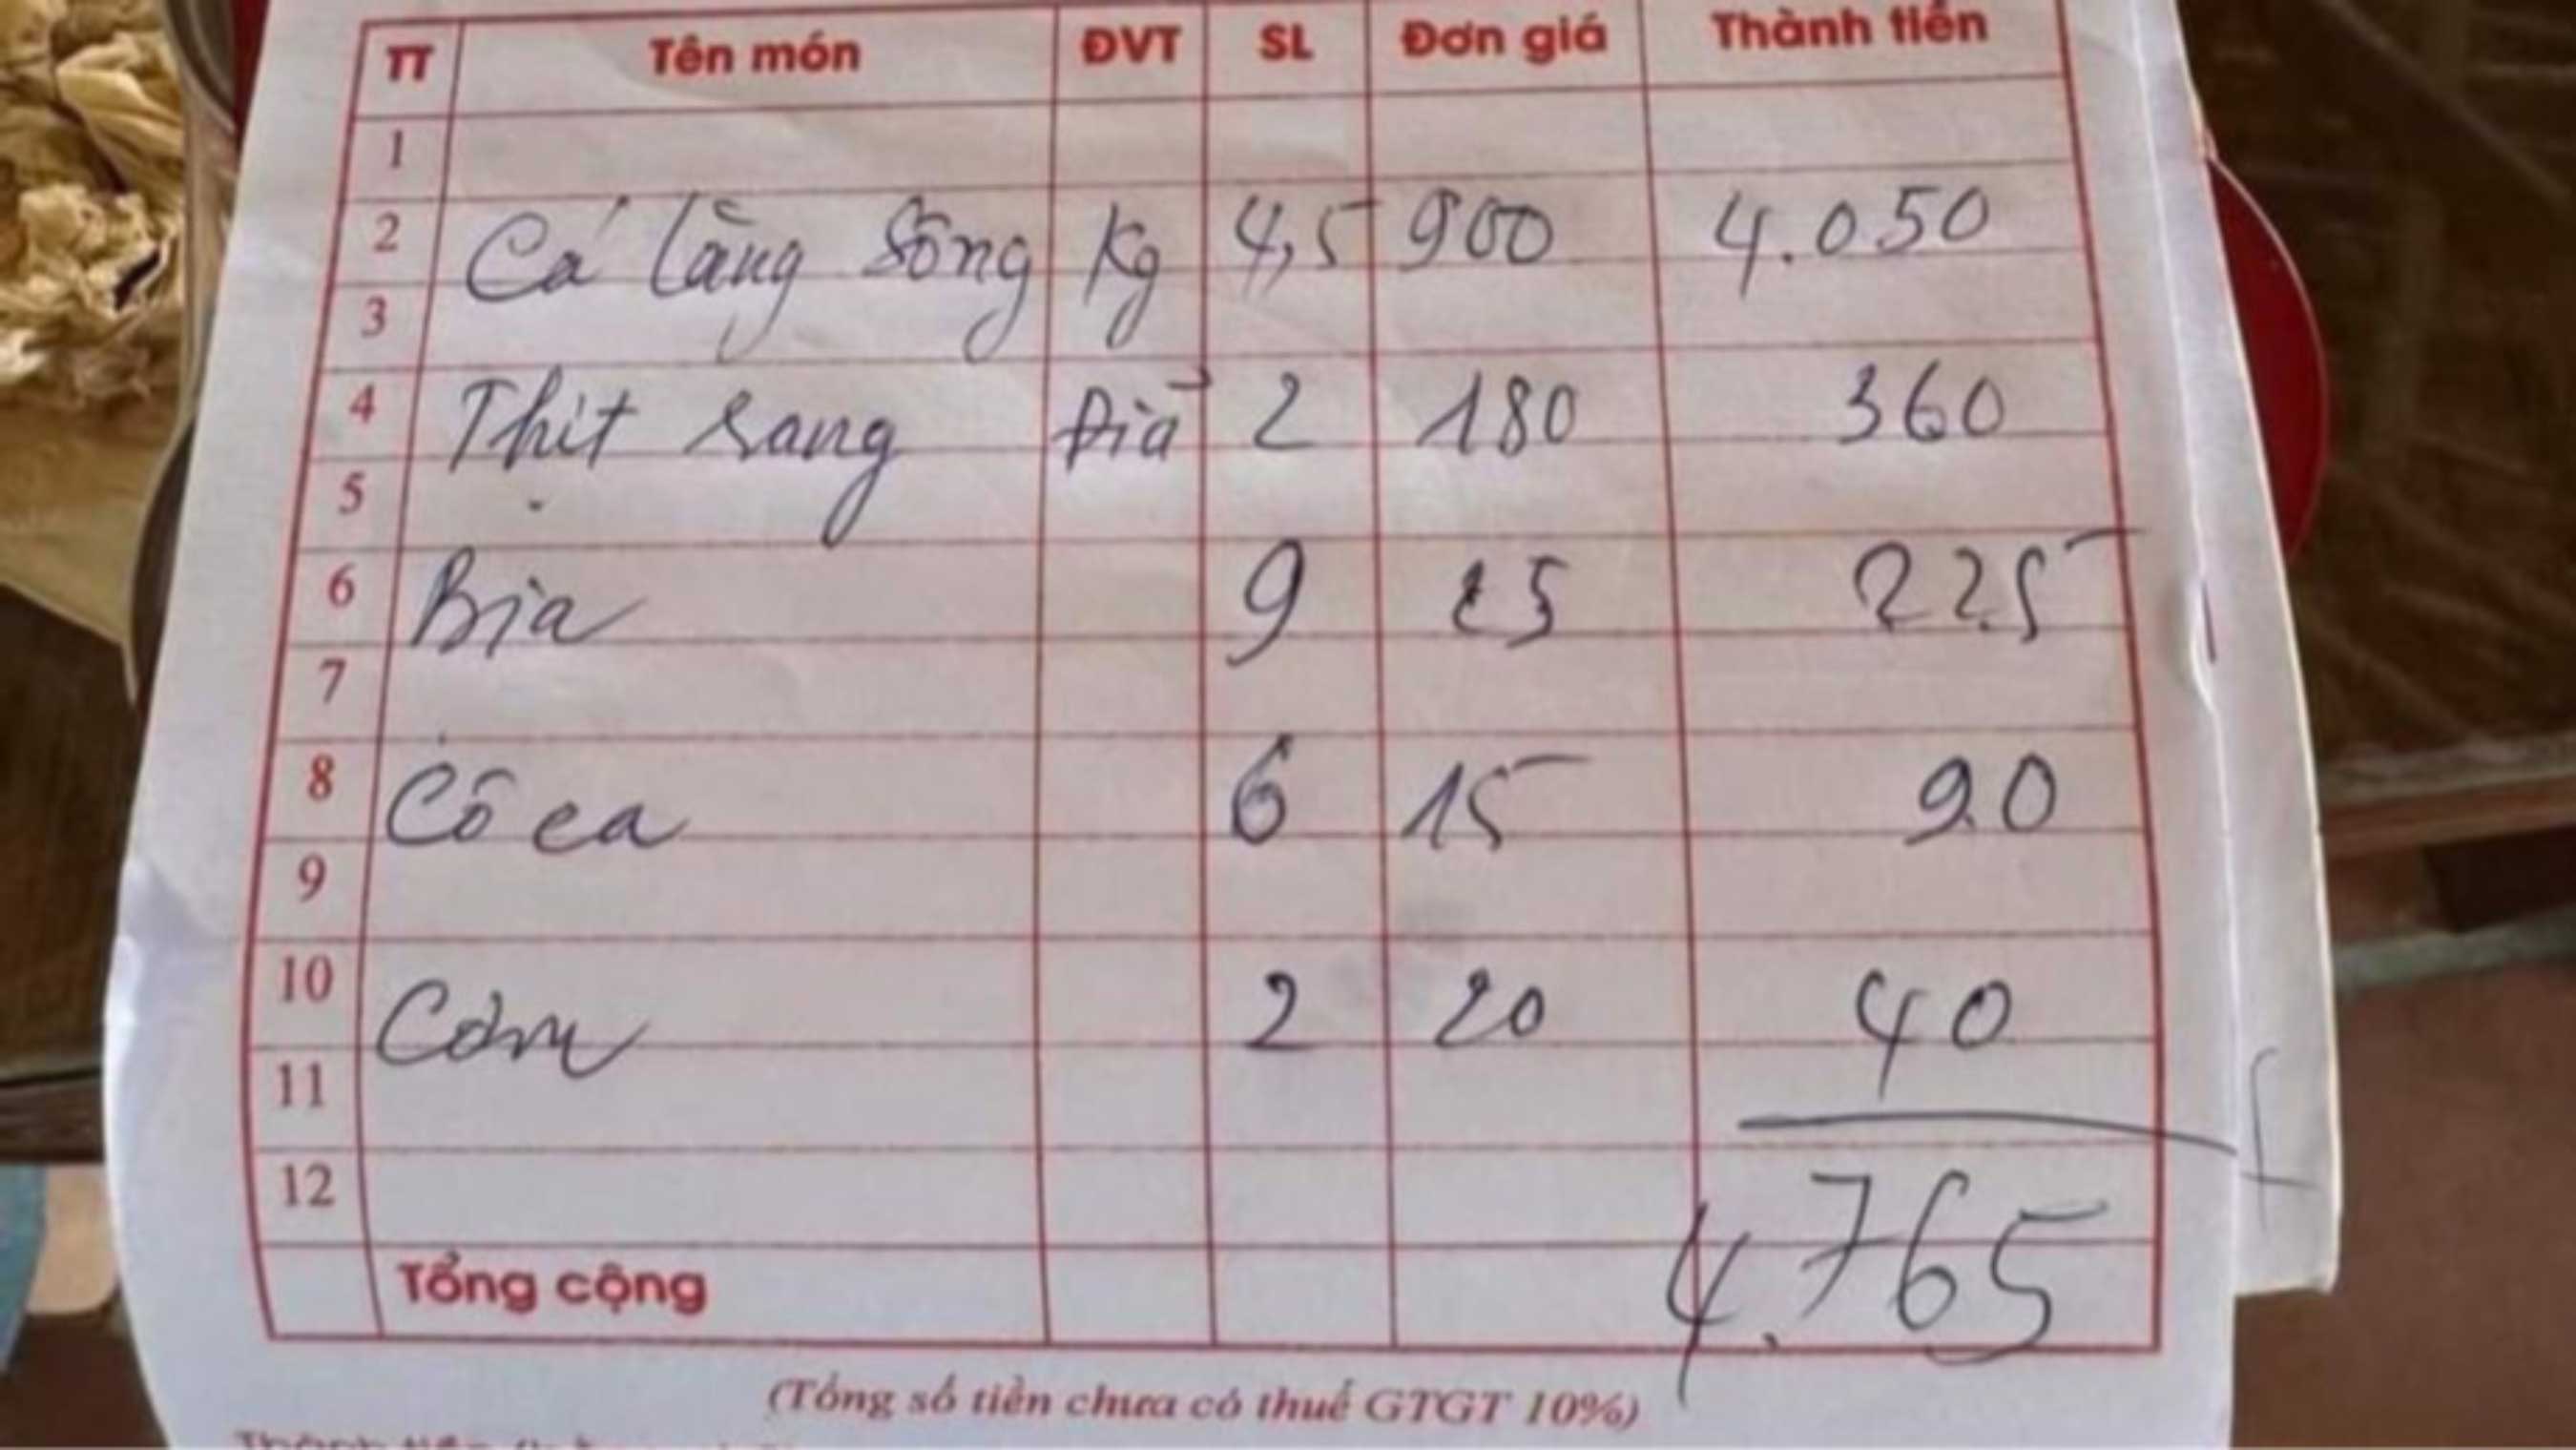 TT Tên món ĐVT SL Đơn giá Thành tiền
1
2 Cá lăng sông Kg 4,5 900 4.050
3
4 Thịt rang Đĩa 2 180 360
5
6 Bia 9 25 225
7
8 Cô ca 6 15 90
9
10 Cơm 2 20 40
11
12
Tổng cộng 4.765
(Tổng số tiền chưa có thuế GTGT 10%)